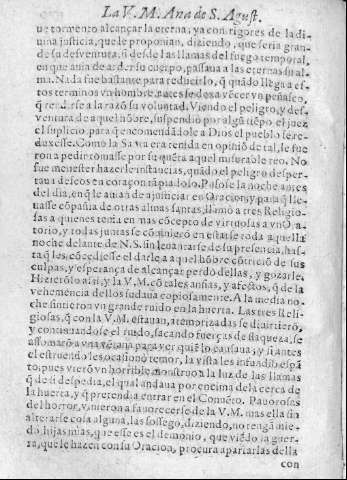 La V. M. Ana de S. Agust.
ue tormento alcançar la eterna, ya con rigores de la di-
uina justicia, que le proponian, diziendo, que seria gran-
de su desventura, si desde las llamas del fuego temporal,
en que auia de ard.r su cuerpo, passaua a las eternas su al-
ma. Nada fue bastante para reducirlo, q̃ quãdo llega a es-
tos terminos vn hombre, antes se dexa vẽcer vn peñasco,
q̃ rendirse a la razõ su voluntad. Viendo el peligro, y des-
ventura de aquel hõbre, suspendió por algũ tiẽpo el juez
el suplicio, para q̃ encomendãdole a Dios el pueblo se re-
duxesse. Como la Sãta era tenida en opiniõ de tal, le fue
ron a pedir tomasse por su quẽta aquel miserable reo. No
fue menester hazerle instancias, quãdo el peligro desper-
taua deseos en coraçon tã piadoso. Pusose la noche antes
del dia, en q̃ le auiã de ajusticiar en Oracion, y para q̃ lle-
uasse cõpañia de otras almas santas, llamó a tres Religio-
sas a quienes tenia en mas cõcepto de virtuosas a vn O a-
torio, y todas juntas se cõuiniero en estarse toda aquella
noche delante de N.S. sin leuantarse de su presencia, has-
ta q̃ les cõcediesse el darle a aquel hõbre cõtriciõ de sus
culpas, y esperança de alcançar perdõ dellas, y gozarle.
Hizierõlo assi, y la V.M. cõ tales ansias, y afectos, q̃ de la
vehemencia dellos sudaua copiosamente. A la media no-
che sintieron vn grande ruido en la huerta. Las tres Reli-
giosas, q̃ con la V.M. estauan, atemorizadas se diuirtierõ,
y continuandose el ruido, sacando fuerças de flaqueza, se
assomarõ a vna vẽtana para ver quiẽ lo causaua, y si antes
el estruendo les ocasionó temor, la vista les infundió espã
to, pues vierõ vn horrible monstruo a la luz de las llamas
q̃ de si despedia, el qual andaua por encima de la cerca de
la huerta, y q̃ pretendia entrar en el Conuẽto. Pauorosas
del horror, vinieron a fauorecerse de la V.M. mas ella sin
alterarse cosa alguna, las sossegó, diziendo, no tengã mie-
do hijas mias, que esse es el demonio, que viẽdo la guer-
ra, que le hazen con su Oracion, procura apartarlas della
con